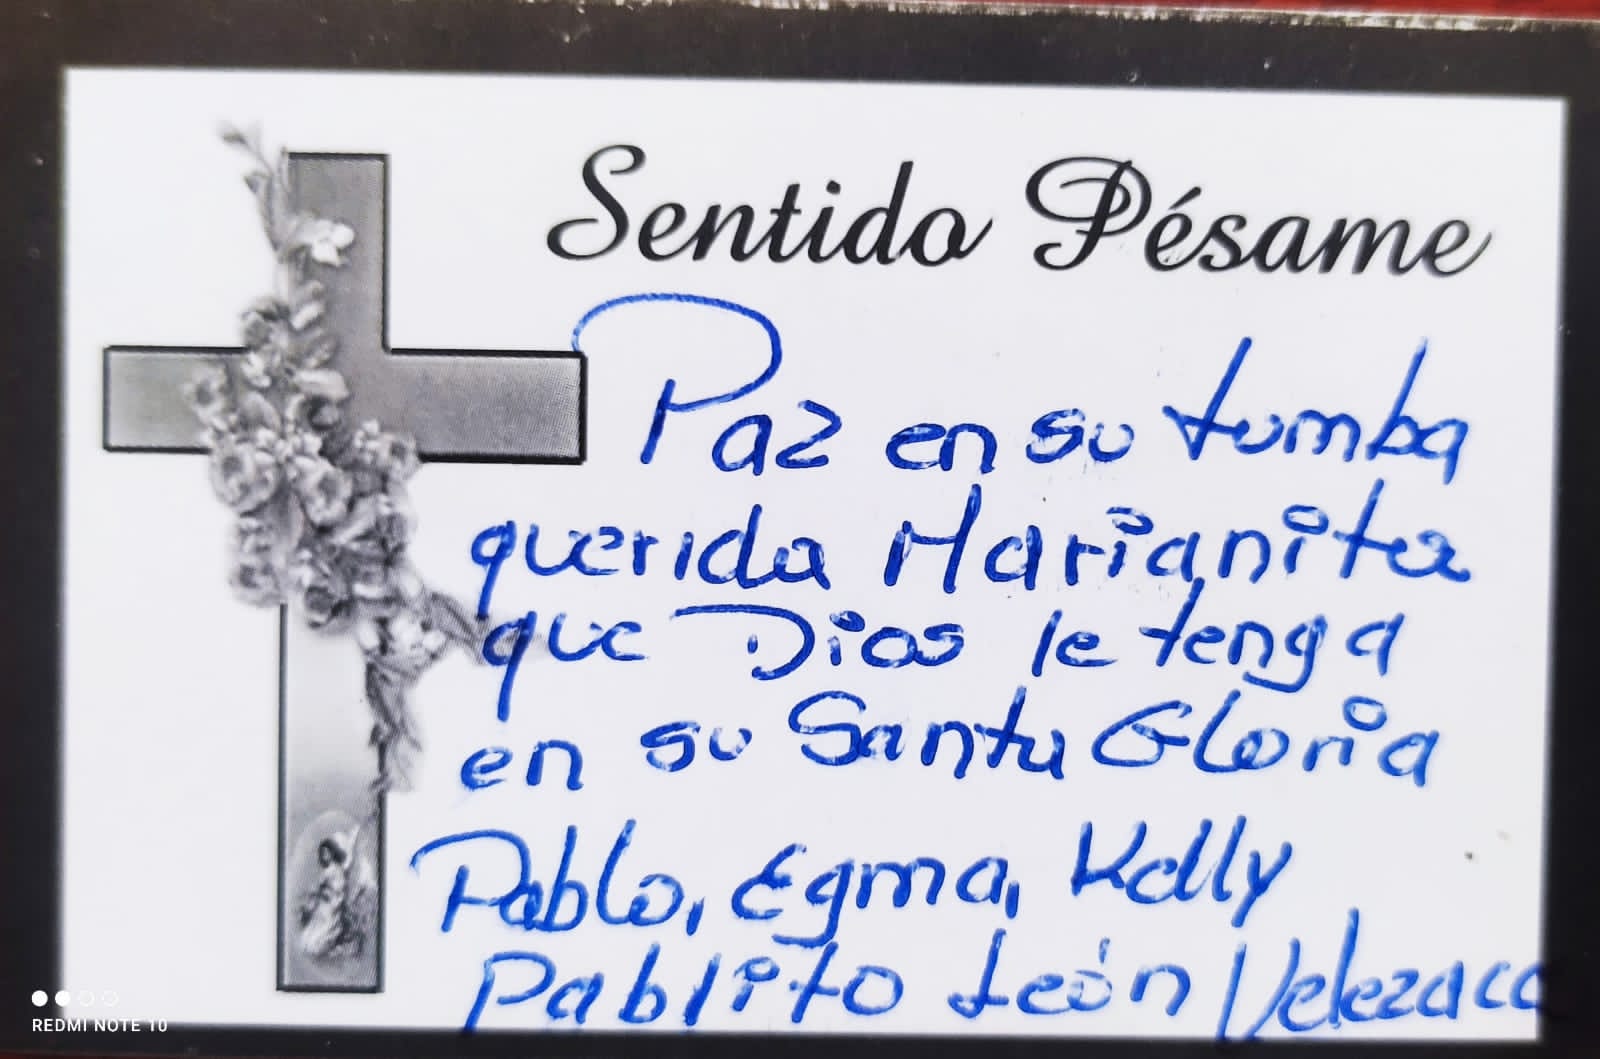 Sentido Pésame
Paz en su tumba
querida Marianita
que Dios le tenga
en su Santa Gloria
Pablo, Egma, Kelly
Pablito León
REDMI NOTE 10